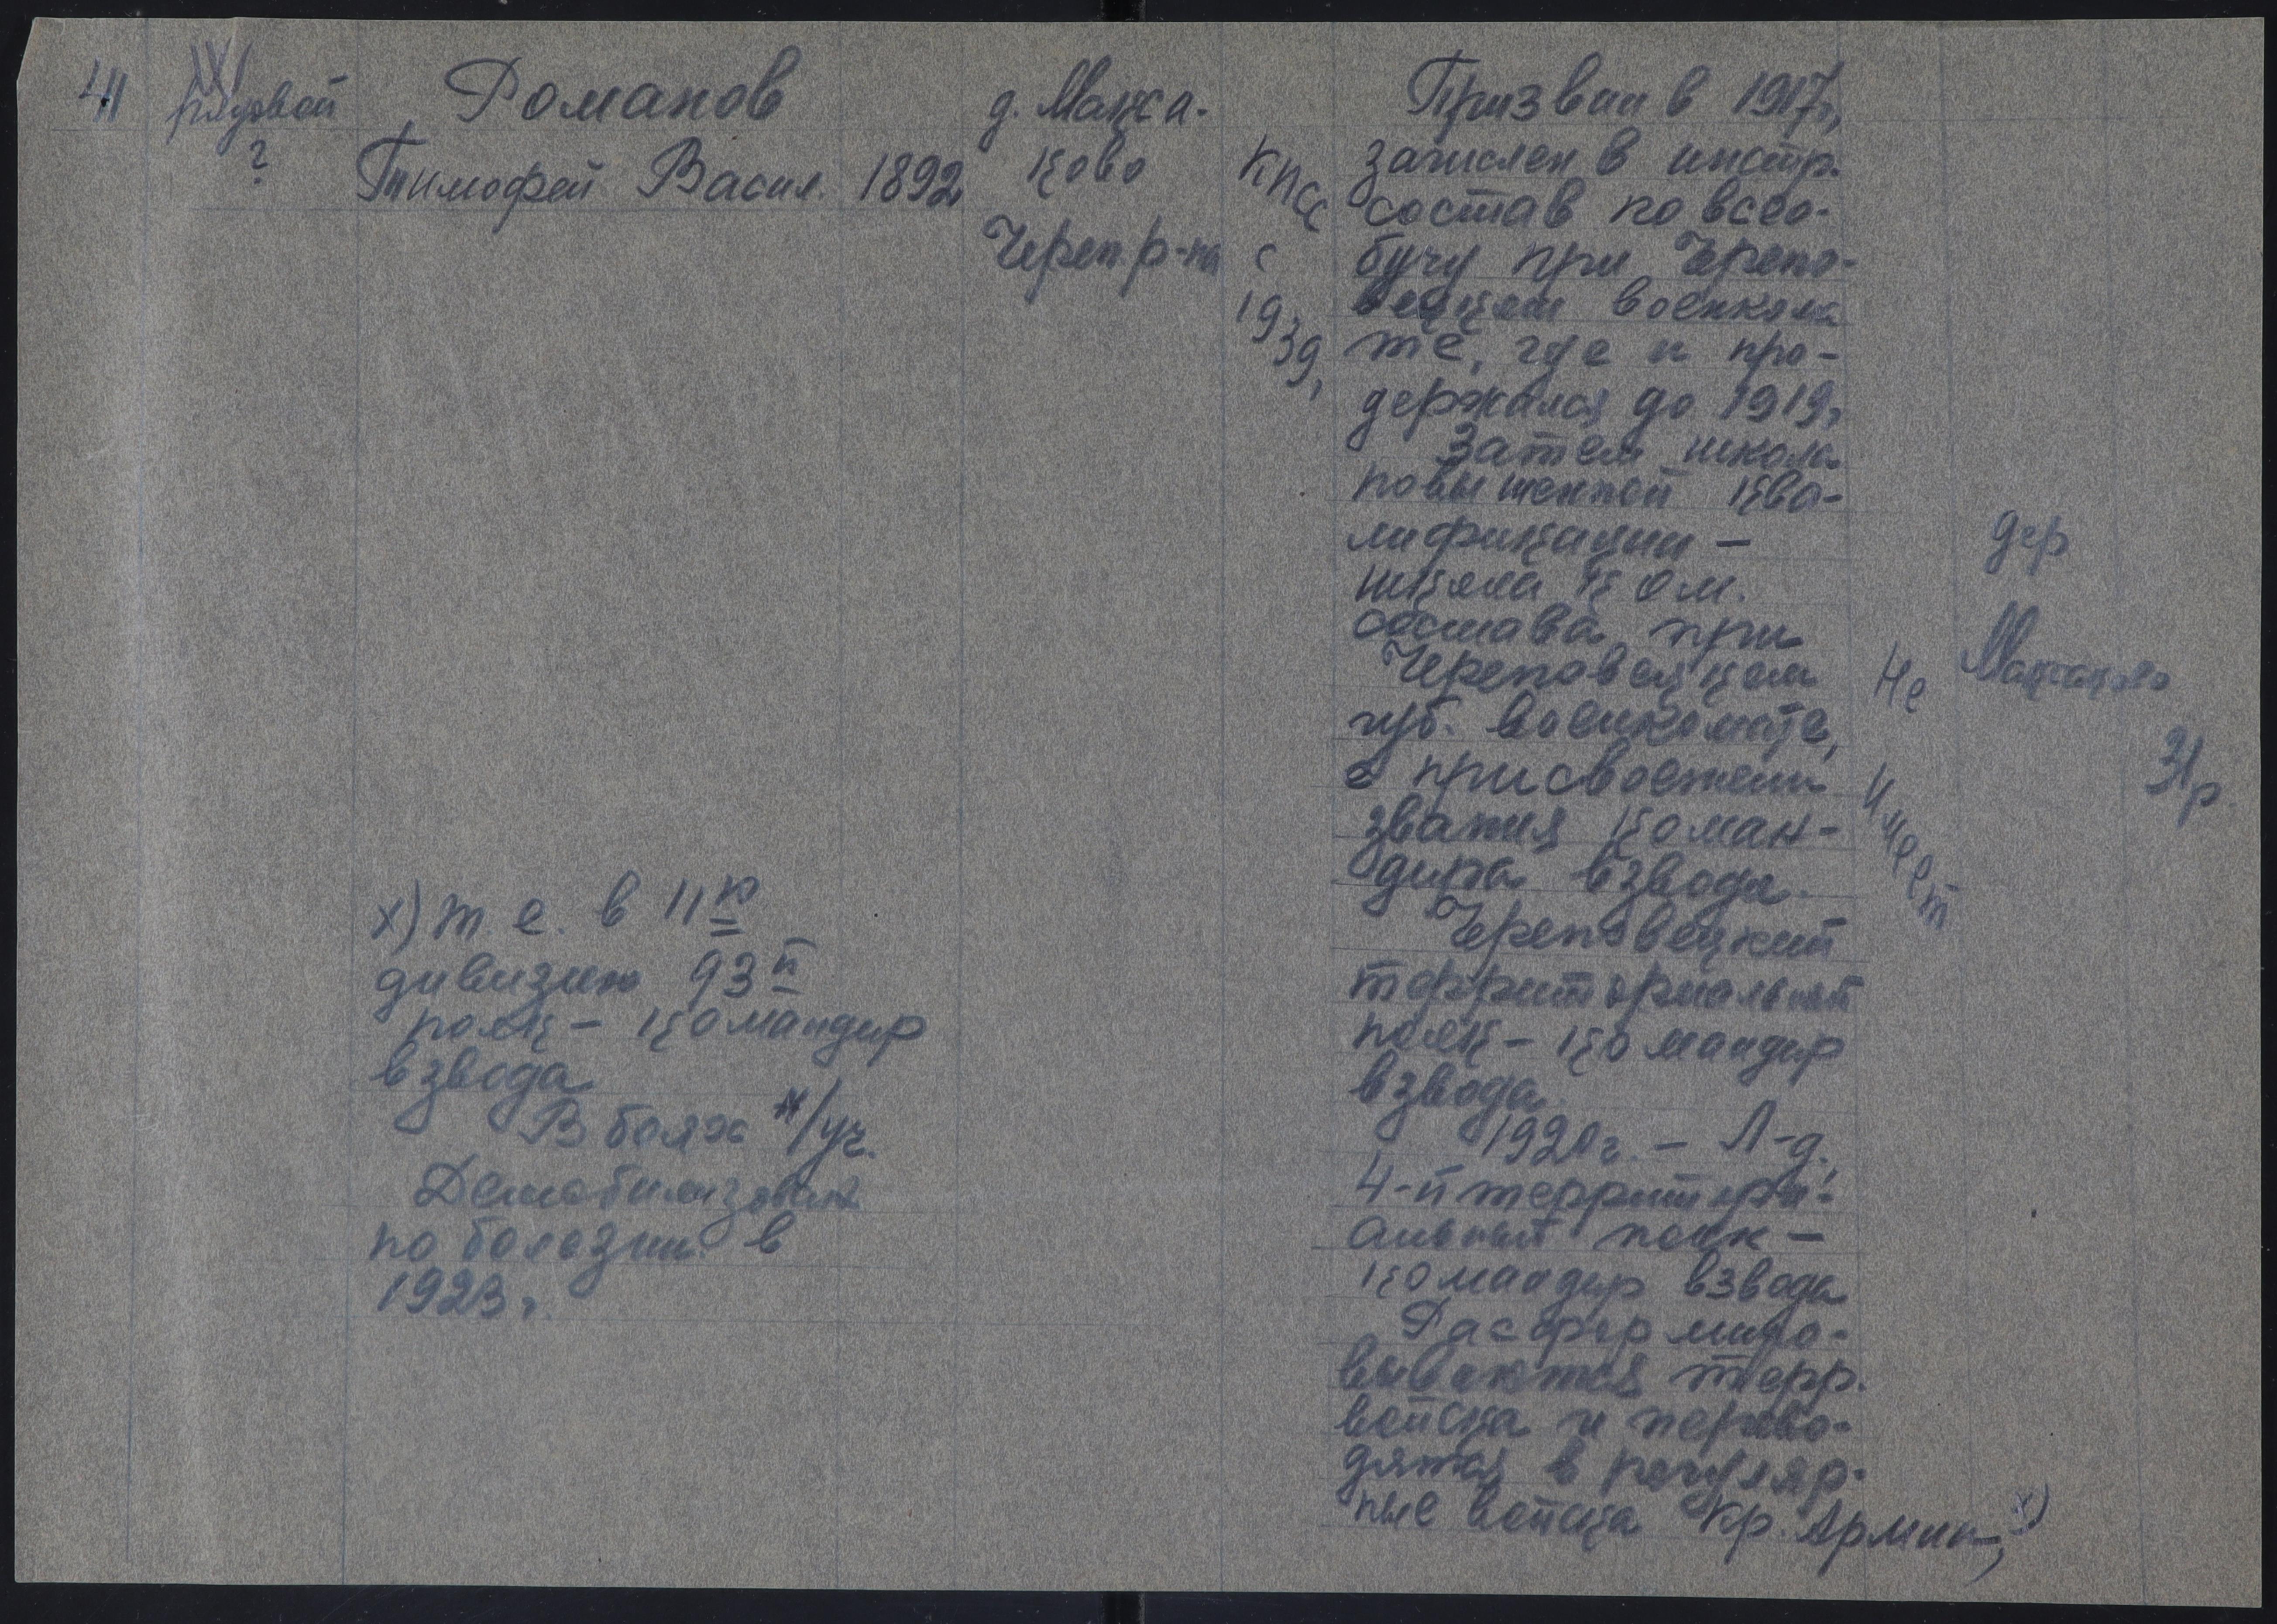 41
рядовой
?
Романов
Тимофей Васил.
1892
д. Макса-
ково
Череп. р-на
КПСС
с
1939г
Призван в 1917г,
зачислен в инстр.
состав по всео-
бучу при Черепо-
вецком военкома
те, где и про-
держался до 1919г
Затем школа
повышенной ква-
лификации -
школа ком.
состава при
Череповецком
губ. военкомате,
с присвоением
звания коман-
дира взвода.
Череповецкий
территориальный
полк - командир
взвода.
1920г. - Л-д,
4-й территори-
альный полк -
командир взвода
Расформиро-
вываются терр.
войска и перево-
дятся в регуляр-
ные войска Кр. Армии, х)
Не
имеет
дер
Максаково
31р.
х) т. е. в 11ю
дивизию 93й
полк - командир
взвода
В боях н/уч.
Демобилизован
по болезни в
1923г.